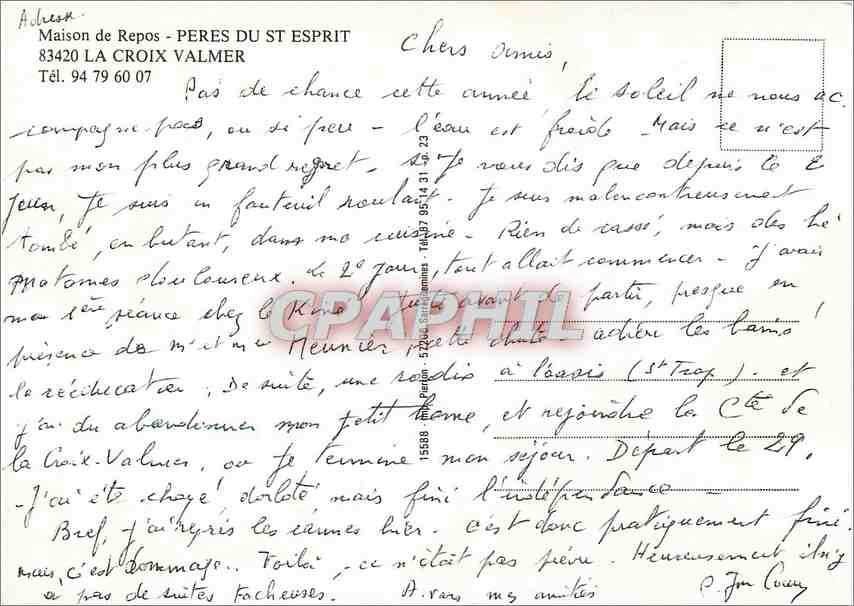 Adresse
Maison de Repos - PERES DU ST ESPRIT
83420 LA CROIX VALMER
Tél. 94 79 60 07
Chers amis,
Pas de chance cette année, le soleil ne nous ac-
compagne pas, ou si peu - l'eau est froide Mais ce n'est
pas mon plus grand regret - si je vous dis que depuis le 2
Juin, je suis en fauteuil roulant. Je suis malencontreusement
tombé, en butant, dans ma cuisine - Rien de cassé, mais des hé
matomes douloureux. Le 2e jour, tout allait commencer - j'avais
ma 1ère séance chez le Kiné juste avant de partir, presque en
présence de Mr et Me Meunier, cette chute - adieu les bains !
la rééducation, De suite, une radio à l'oasis (St Trop). et
j'ai du abandonner mon petit home, et rejoindre la Cté de
la Croix-Valmer, ou je termine mon séjour. Départ le 29.
- J'ai été choyé, dorloté mais fini l'indépendance -
Bref, j'ai repris les cannes hier. C'est donc pratiquement fini.
mais, c'est dommage.. Voilà, ce n'était pas prévu. Heureusement il n'y
a pas de suites facheuses. A vous mes amitiés
P. Jean
15588 - Imp. Pierron - 57206 Sarreguemines - Tél. 87 95 14 31 - p. 23
CPAPHIL